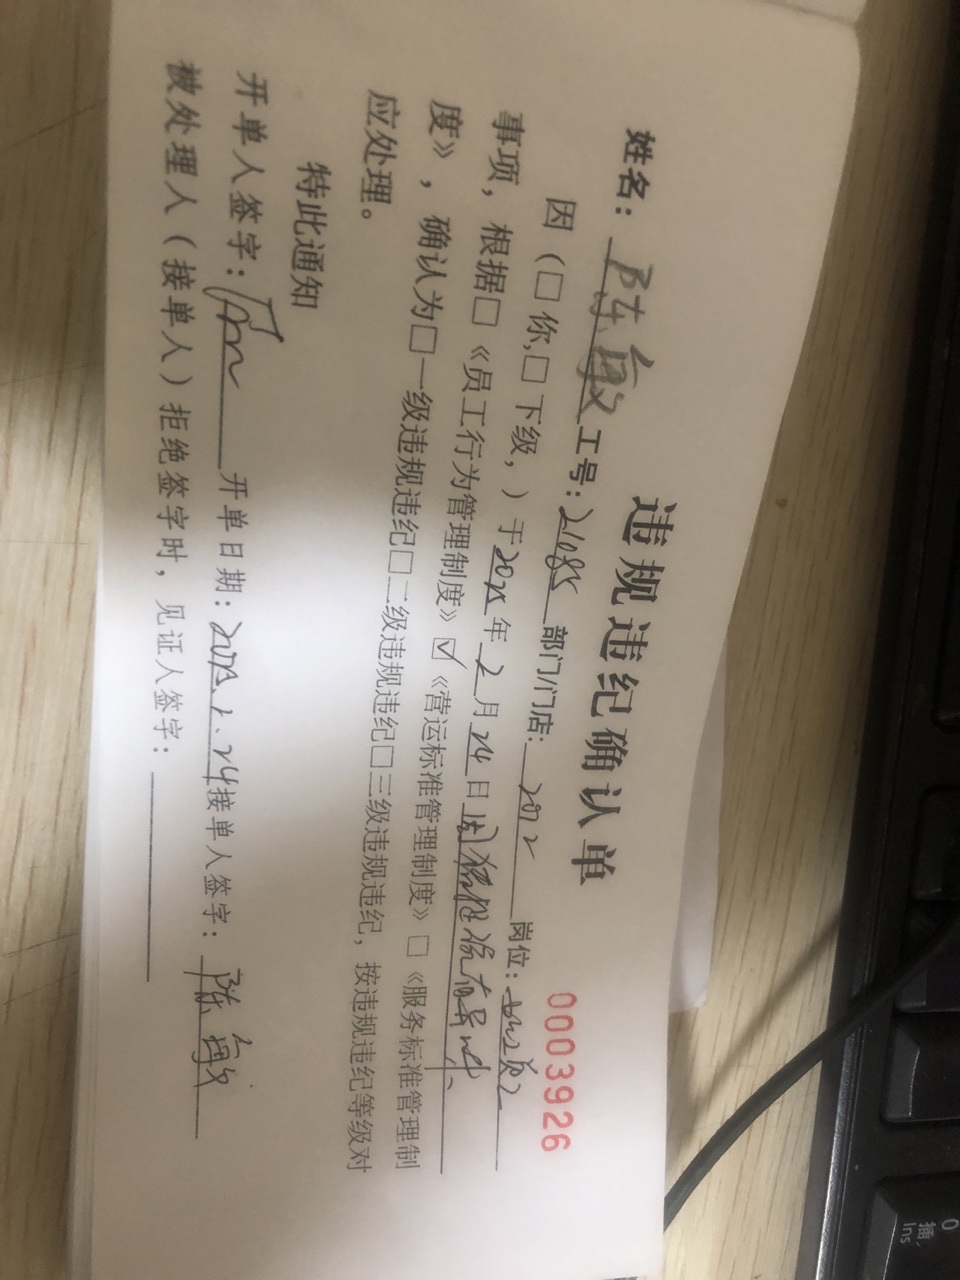 违规违纪确认单
0003926
姓名：陈敏工号：21085部门/门店：2072岗位：
因（□你,□下级，）于2025年2月24日
事项，根据□《员工行为管理制度》☑《营运标准管理制度》□《服务标准管理制
度》，确认为□一级违规违纪□二级违规违纪□三级违规违纪，按违规违纪等级对
应处理。
特此通知
开单人签字：开单日期：2025.2.24接单人签字：陈敏
被处理人（接单人）拒绝签字时，见证人签字：
0
插,
Ins